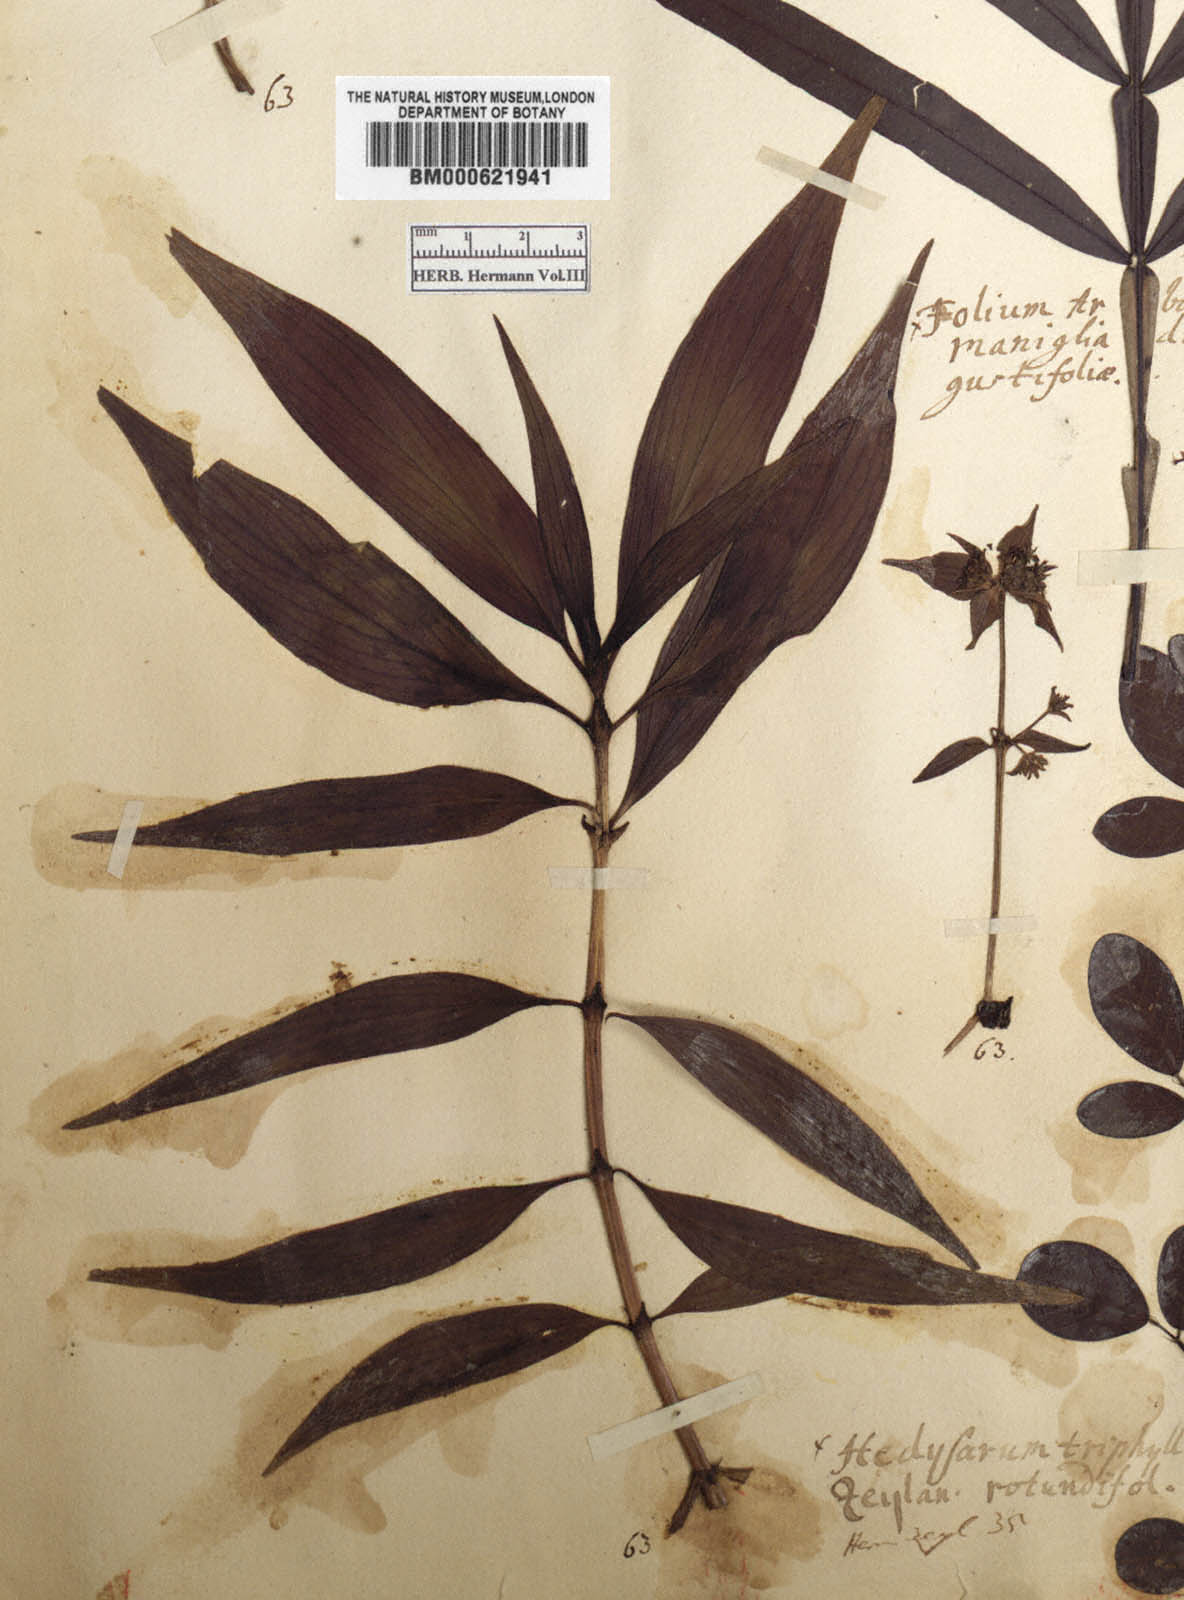 63
THE NATURAL HISTORY MUSEUM,LONDON
DEPARTMENT OF BOTANY
BM000621941
mm 1 2 3
HERB. Hermann Vol.III
Folium Ar
maniglia
gustifoliæ.
63.
Hedysarum triphyll
Zeylan. rotundifol.
63